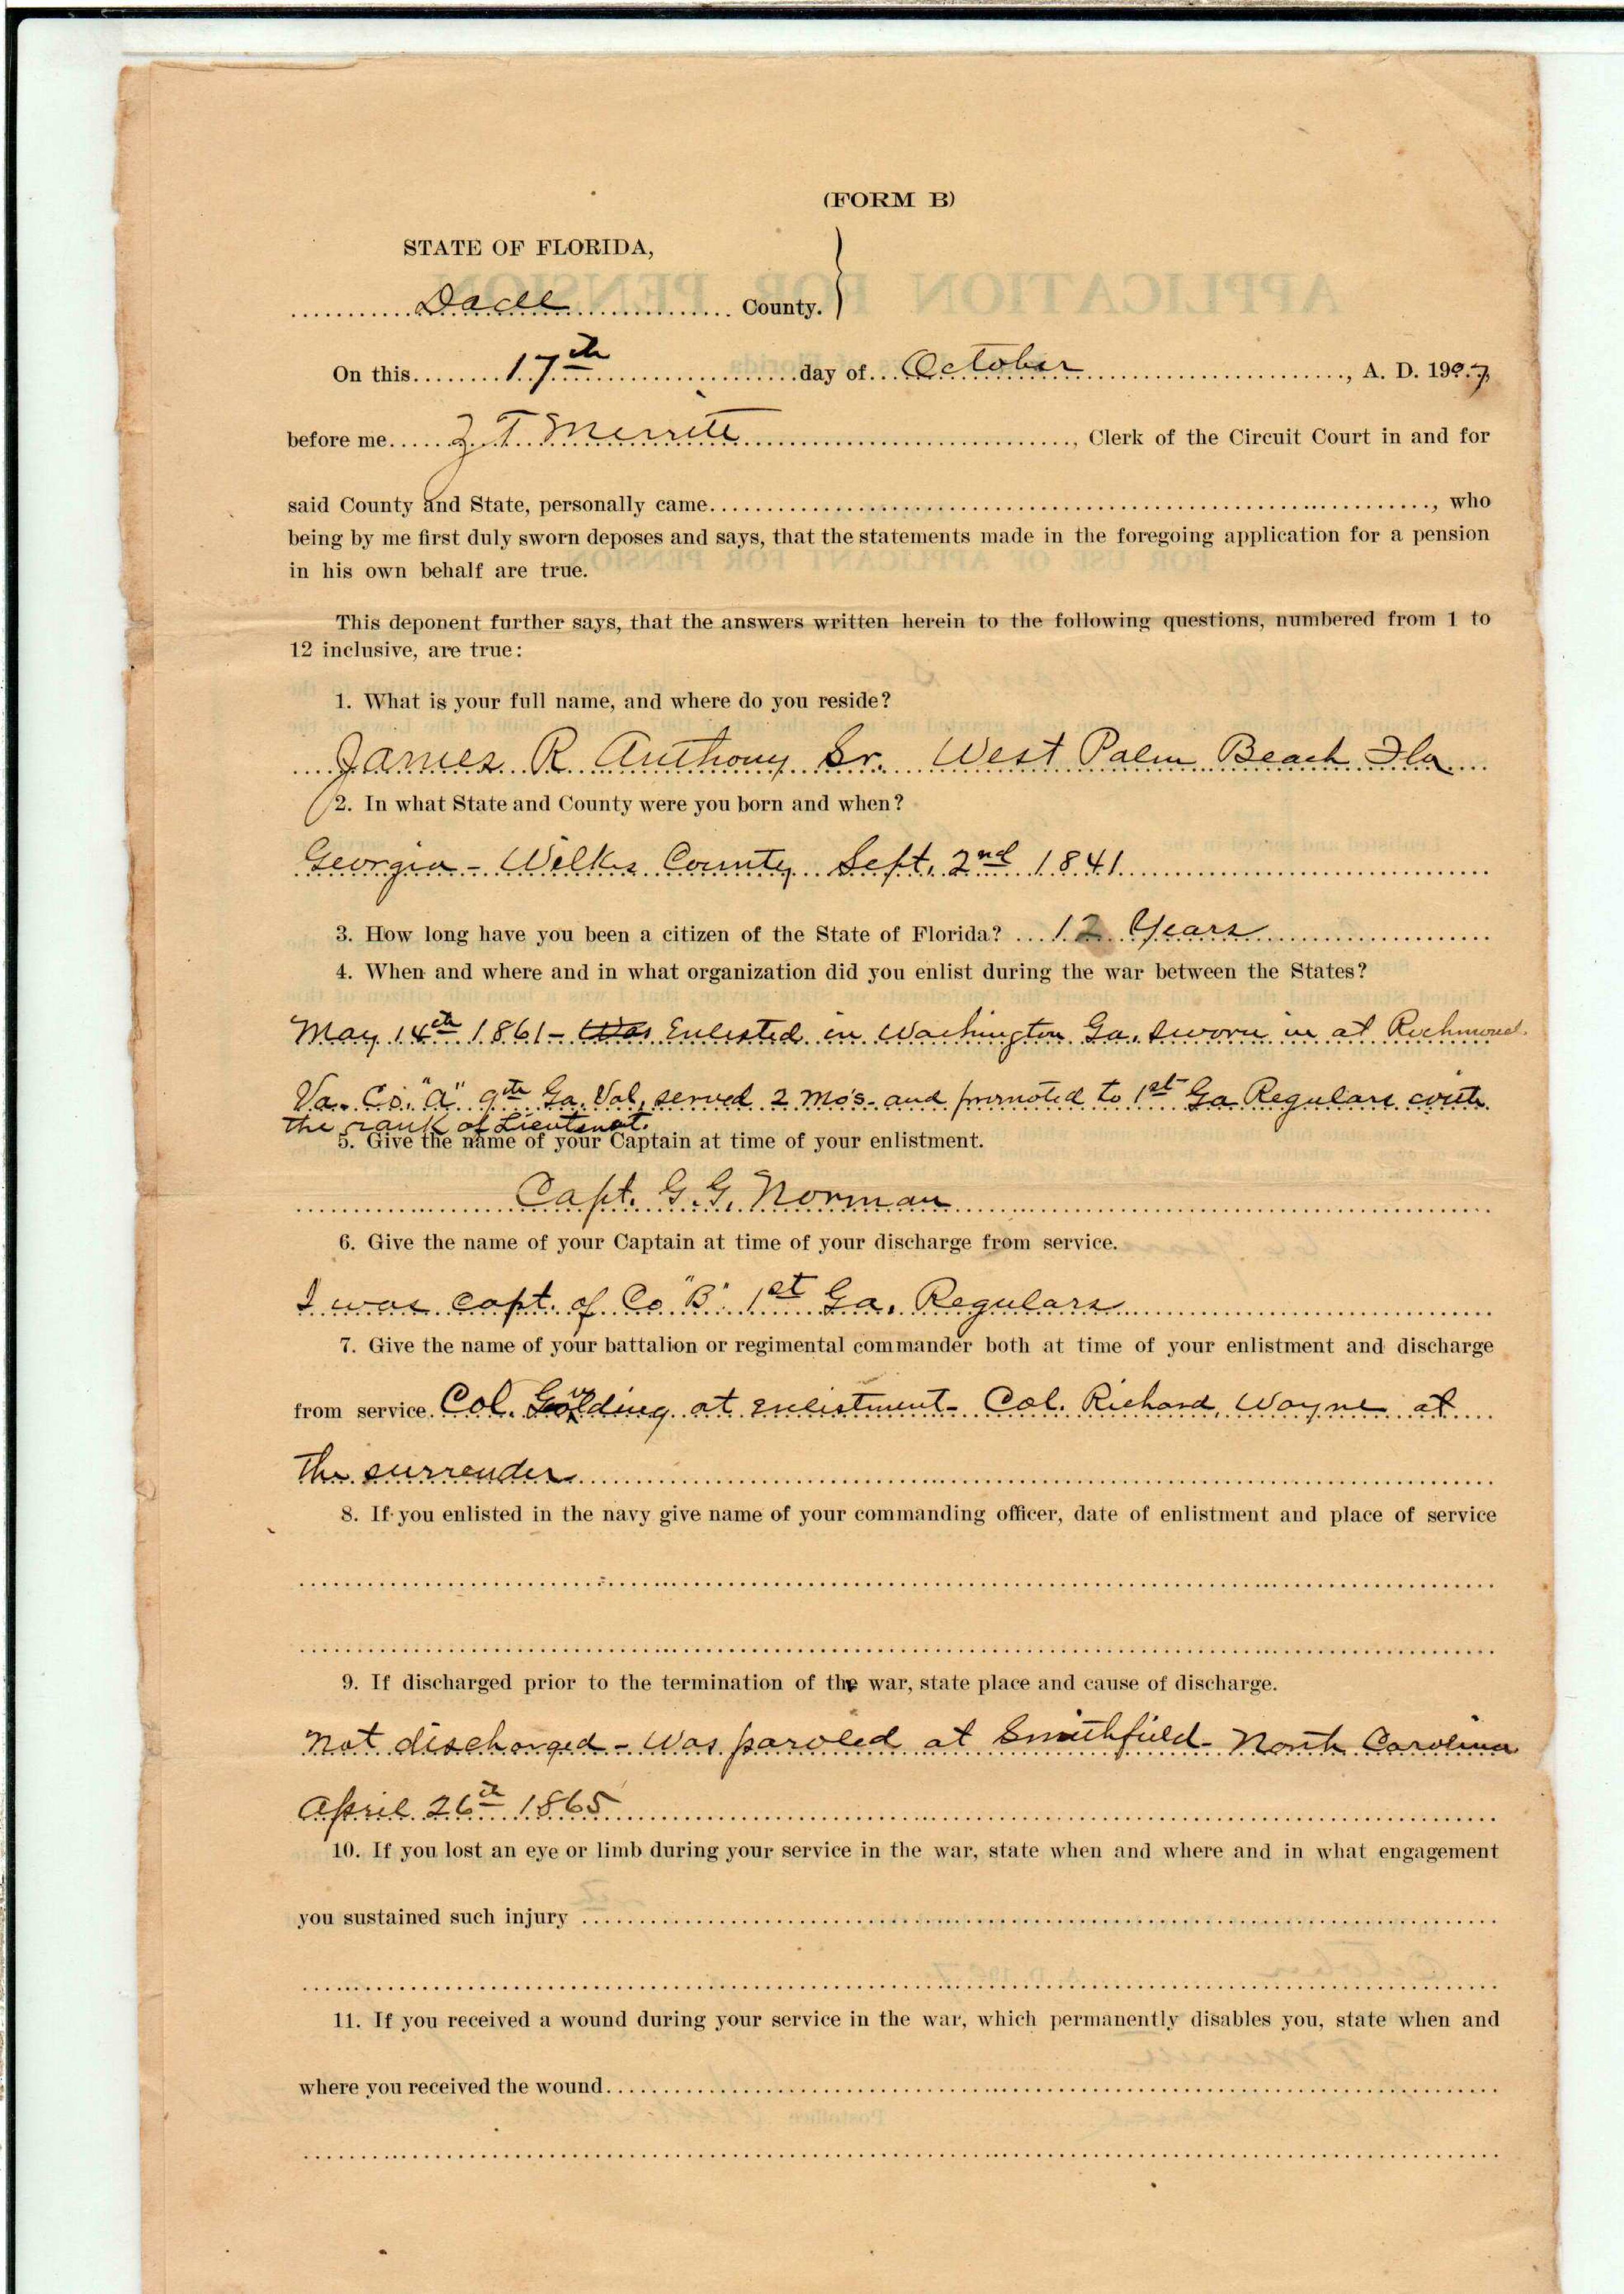 (FORM B)
STATE OF FLORIDA,
Dade County.
On this 17th day of October, A. D. 1907,
before me Z. T. Merritt, Clerk of the Circuit Court in and for
said County and State, personally came, who
being by me first duly sworn deposes and says, that the statements made in the foregoing application for a pension
in his own behalf are true.
This deponent further says, that the answers written herein to the following questions, numbered from 1 to
12 inclusive, are true:
1. What is your full name, and where do you reside?
James R. Anthony Sr. West Palm Beach Fla
2. In what State and County were you born and when?
Georgia - Wilkes County Sept. 2nd 1841
3. How long have you been a citizen of the State of Florida? 12 Years
4. When and where and in what organization did you enlist during the war between the States?
May 14th 1861 - Was Enlisted in Washington Ga. Sworn in at Richmond
Va. Co. "A" 9th Ga. Vol, served 2 mo's and promoted to 1st Ga Regulars with
the rank of Lieutenat.
5. Give the name of your Captain at time of your enlistment.
Capt. G. G. Norman
6. Give the name of your Captain at time of your discharge from service.
I was capt. of Co "B" 1st Ga. Regulars
7. Give the name of your battalion or regimental commander both at time of your enlistment and discharge
from service. Col. at enlistment - Col. Richard, Wayne at
the surrender
8. If you enlisted in the navy give name of your commanding officer, date of enlistment and place of service
9. If discharged prior to the termination of the war, state place and cause of discharge.
not discharged - Was paroled at Smithfield - North Carolina
April 26th 1865
10. If you lost an eye or limb during your service in the war, state when and where and in what engagement
you sustained such injury
11. If you received a wound during your service in the war, which permanently disables you, state when and
where you received the wound.